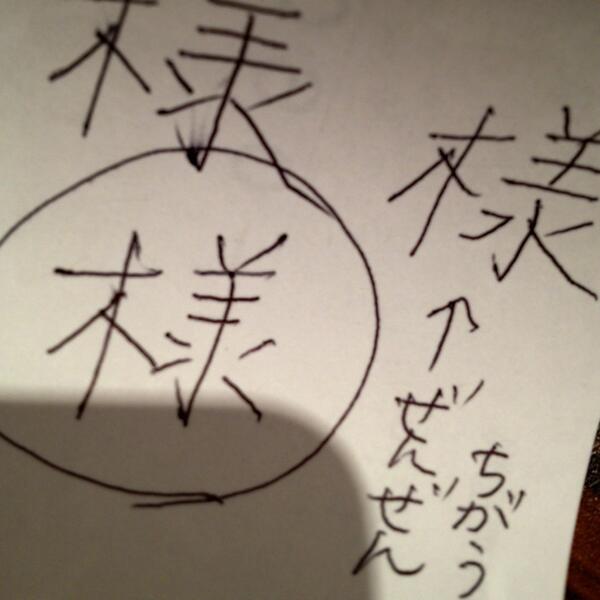 様
様
様
↑ぜんぜん
ちがう